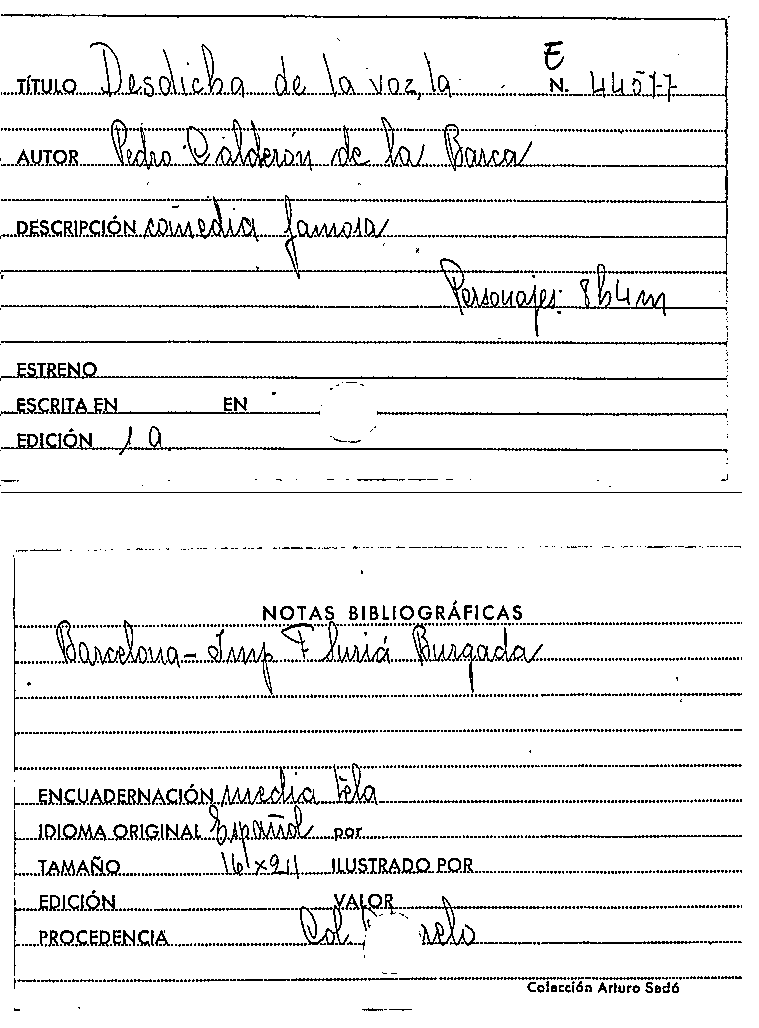 E
TÍTULO Desdicha de la voz, la N. 44577
AUTOR Pedro Calderón de la Barca
DESCRIPCIÓN comedia famosa
Personajes: 8h4m
ESTRENO
ESCRITA EN EN
EDICIÓN 1a
NOTAS BIBLIOGRÁFICAS
Barcelona - Imp F Suriá Burgada
ENCUADERNACIÓN media tela
IDIOMA ORIGINAL Español por
TAMAÑO ILUSTRADO POR
EDICIÓN VALOR
PROCEDENCIA Col.
Colección Arturo Sedó